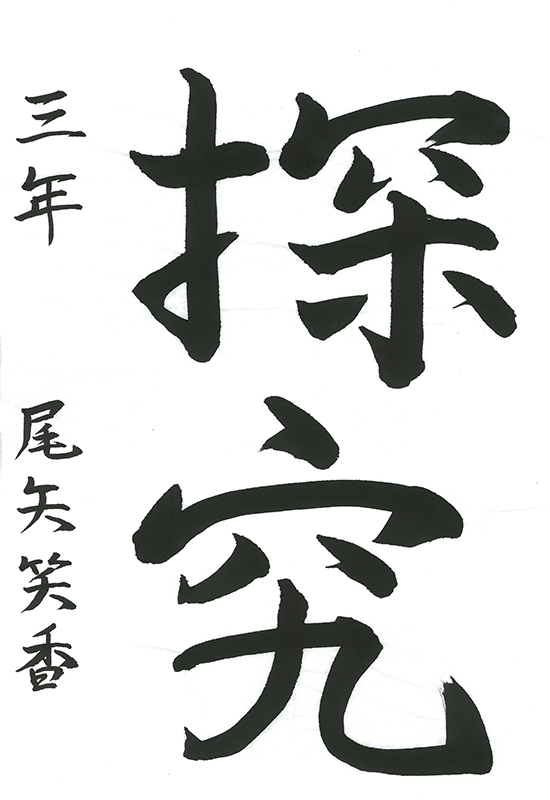 探究
三年 尾矢笑香